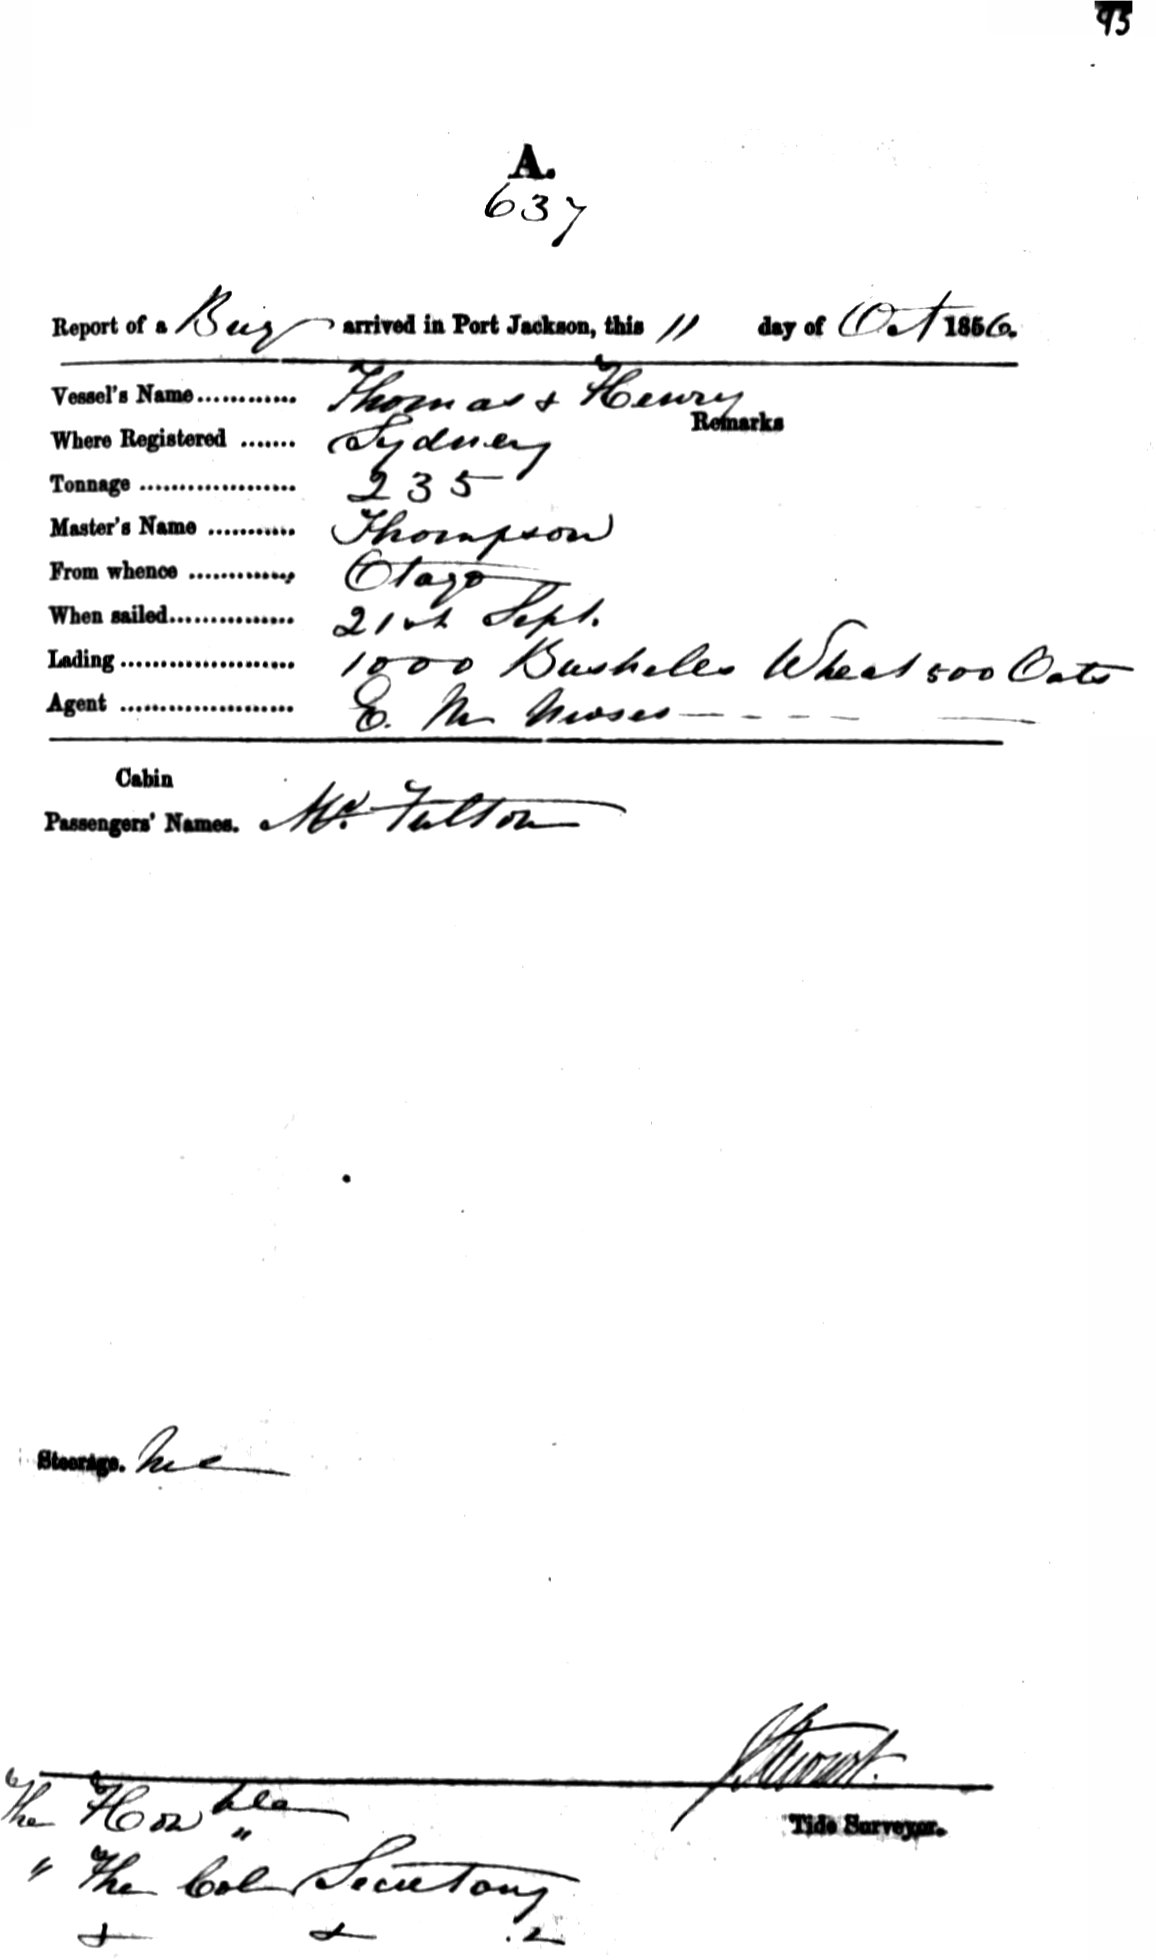 93
A.
637
Report of a Brig arrived in Port Jackson, this 11 day of Oct 1856.
Vessel's Name............ Thomas & Henry
Remarks
Where Registered ....... Sydney
Tonnage ................... 235
Master's Name ........... Thompson
From whence ............, Otago
When sailed............... 21st Sept.
Lading ..................... 1000 Busheles Wheat 500 Oats
Agent ...................... E. M Moses
Cabin
Passengers' Names. Mr. Fulton
Steerage.
Tide Surveyor.
The Honble
" "
The Col Secretary
& & &